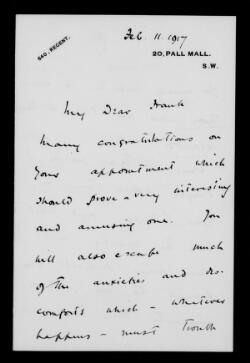 Feb. 11. 1917
640, REGENT.
20, PALL MALL.
S.W.
My Dear Frank
Many congratulations on
your appointment which
should prove a very interesting
and amusing one. You
will also escape much
of the anxieties and dis-
comforts which - whatever
happens - must